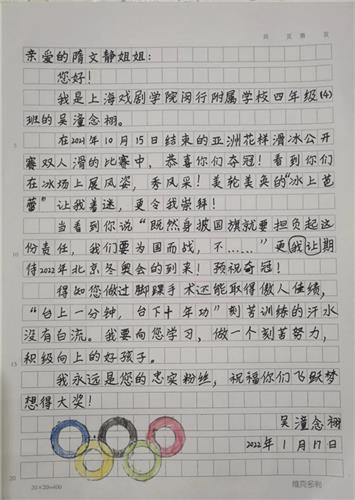 共 页 第 页
亲爱的隋文静姐姐:
您好!
我是上海戏剧学院闵行附属学校四年级(4)
班的吴潼念栩。
在2021年10月15日结束的亚洲花样滑冰公开
赛双人滑的比赛中,恭喜你们夺冠!看到你们
在冰场上展风姿,秀风采!美轮美奂的“冰上芭
蕾”让我着迷,更令我崇拜!
当看到你说“既然身披国旗就要担负起这
份责任,我们要为国而战,不……”更我让期
待2022年北京冬奥会的到来!预祝夺冠!
得知您做过脚踝手术还能取得傲人佳绩,
“台上一分钟,台下十年功”刻苦训练的汗水
没有白流。我要向您学习,做一个刻苦努力,
积级向上的好孩子。
我永远是您的忠实粉丝,祝福你们飞跃梦
想得大奖!
吴潼念栩
2022年1月17日
5
10
15
20
20×20=400
维克多利